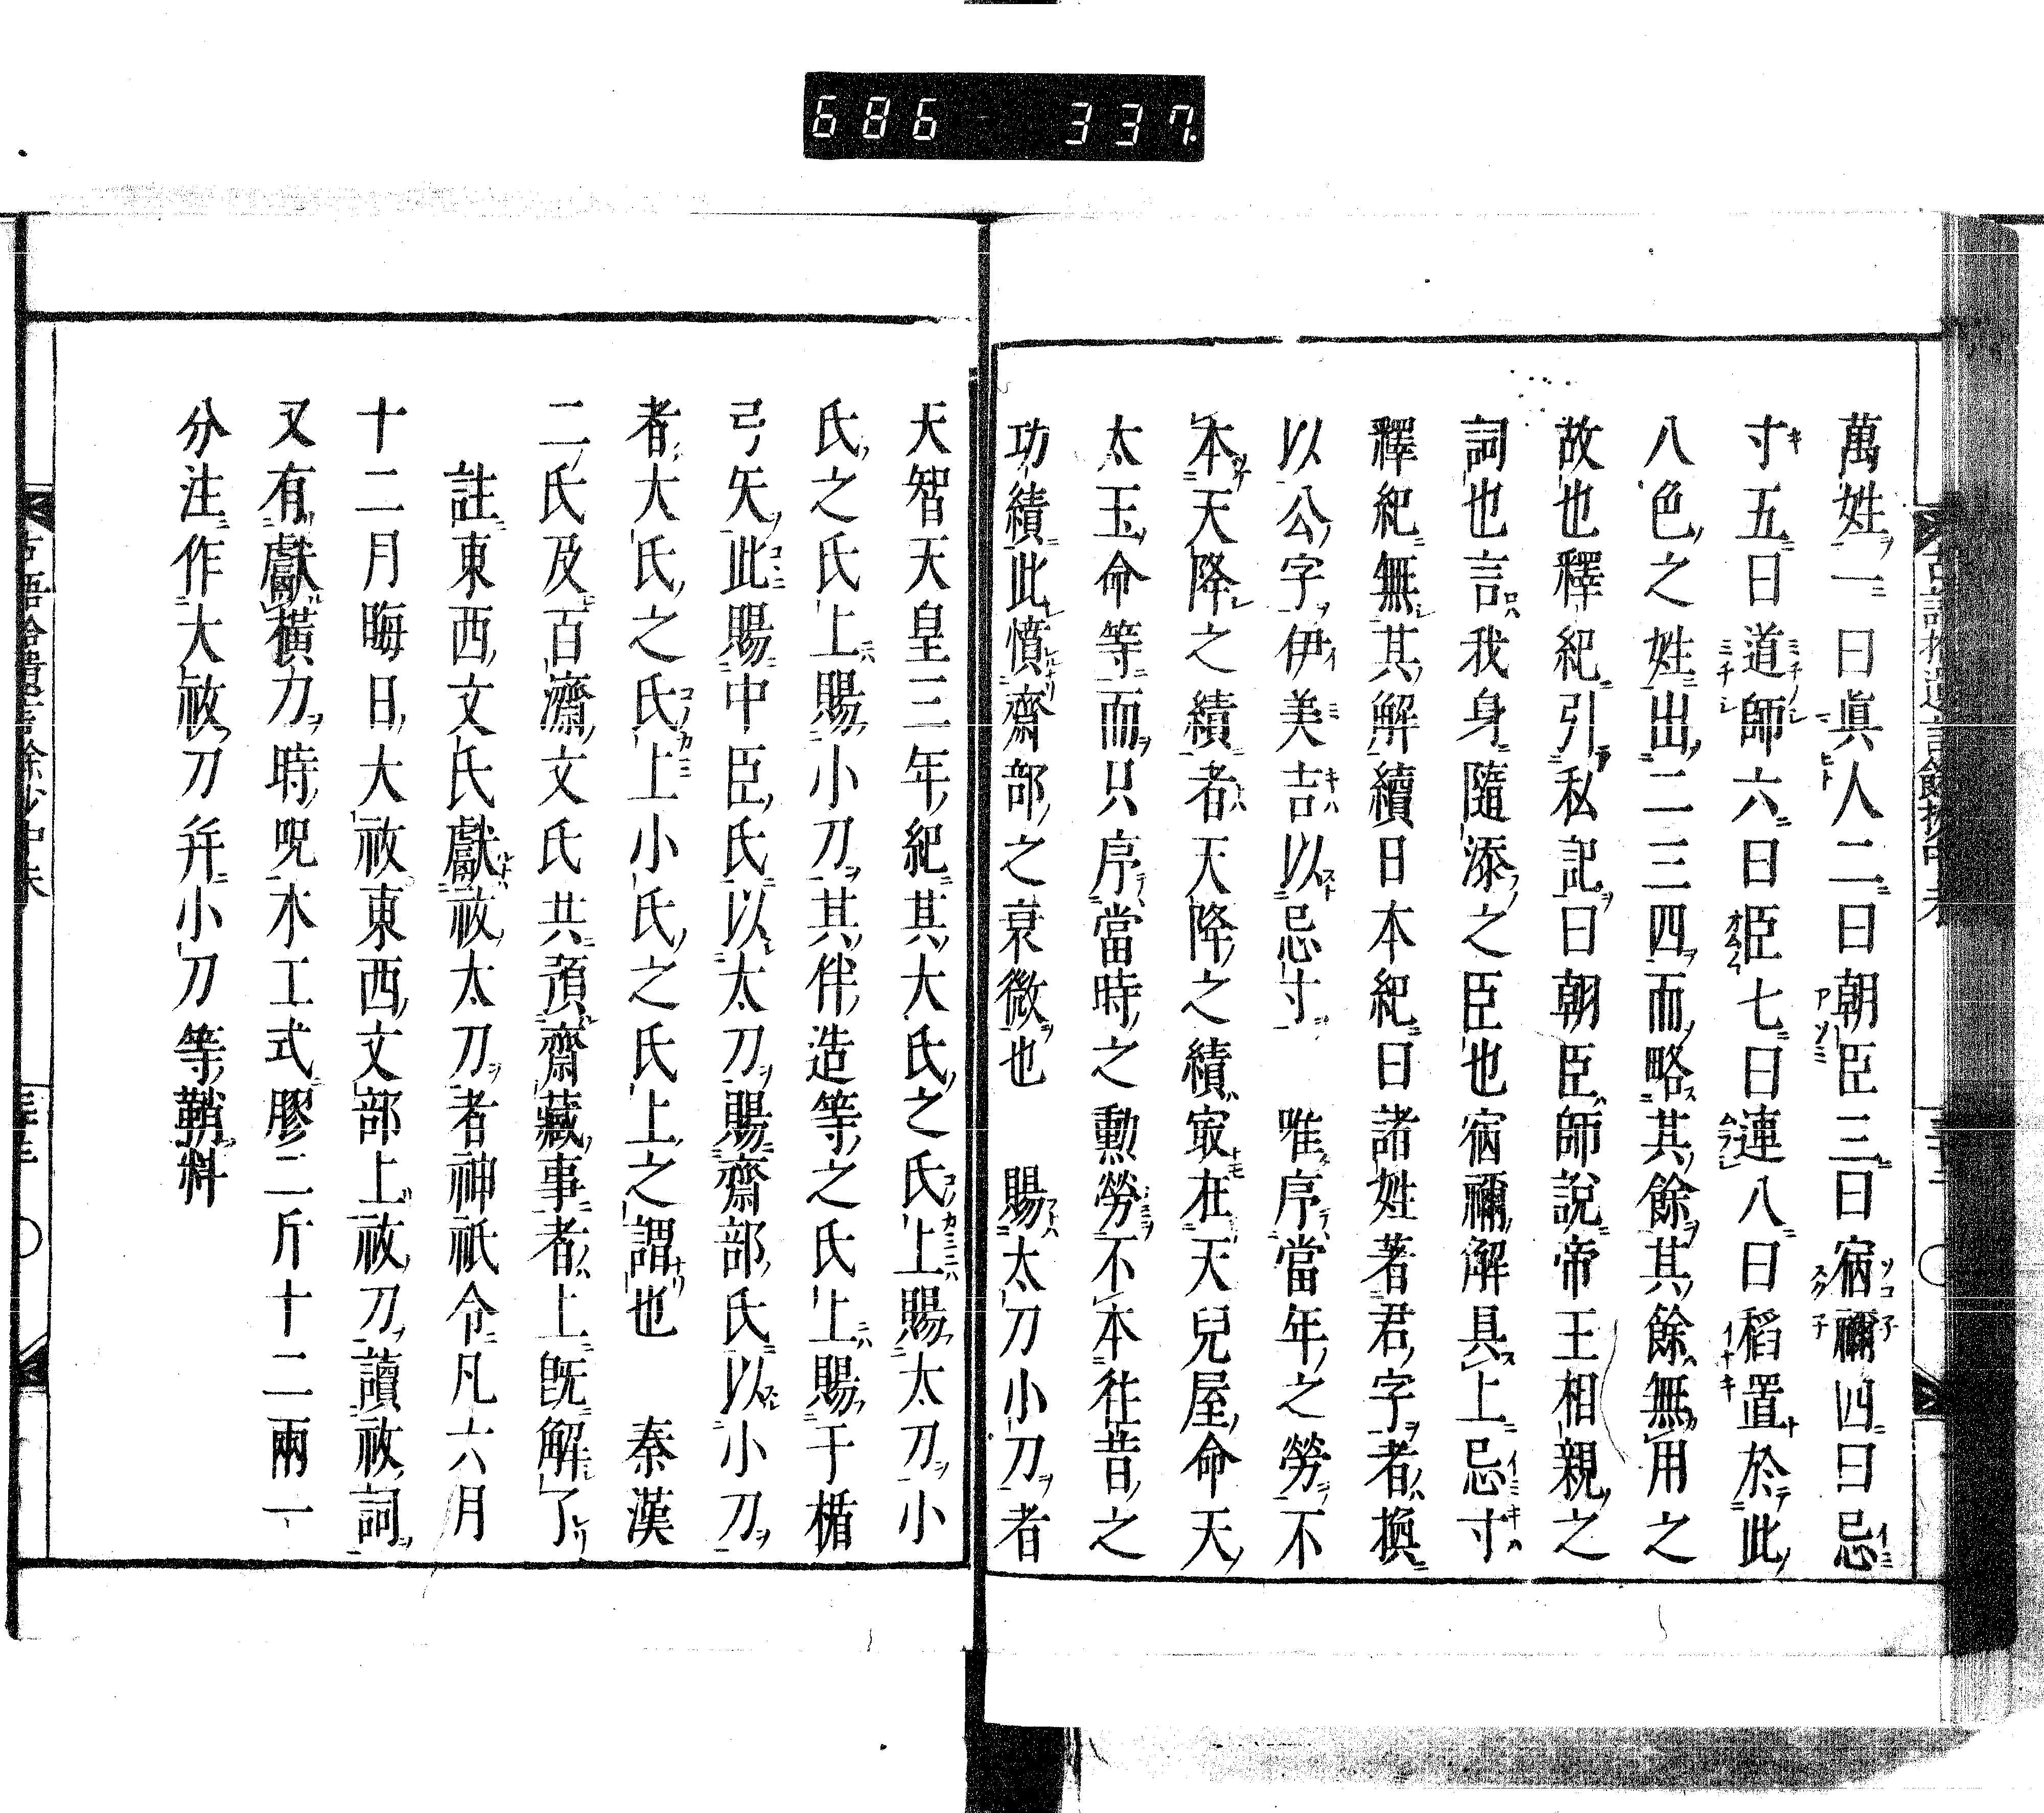 686 337
萬姓一曰眞人二曰朝臣三曰宿禰四曰忌
寸五曰道師六曰臣七曰連八曰稻置於此
八色之姓出二三四而略其餘其餘無用之
故也釋紀引私記曰朝臣師說帝王相親之
詞也言我身隨添之臣也宿禰解具上忌寸
釋紀無其解續日本紀曰諸姓著君字者換
以公字伊美吉以忌寸 唯序當年之勞不
本天降之績者天降之績㝡在天兒屋命天
太玉命等而只序當時之勳勞不本徃昔之
功績此憤齋部之衰微也 賜太刀小刀者
天智天皇三年紀其大氏之氏上賜太刀小
氏之氏上賜小刀其伴造等之氏上賜于楯
弓矢此賜中臣氏以太刀賜齋部氏以小刀
者大氏之氏上小氏之氏上之謂也 秦漢
二氏及百濟文氏共預齋藏事者上既解了
註東西文氏獻祓太刀者神祇令凡六月
十二月晦日大祓東西文部上祓刀讀祓詞
又有獻橫刀時呪木工式膠二斤十二兩一
分注作大祓刀并小刀等鞘料